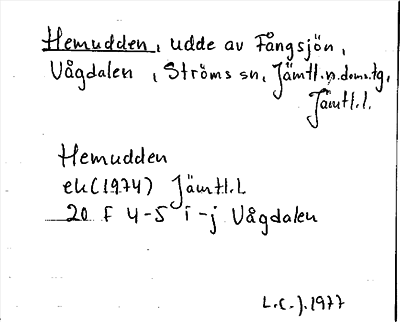 Hemudden, udde av Fångsjön,
Vågdalen, Ströms sn, Jämtl.n.doms.tg,
Jämtl.l.
Hemudden
ek(1974) Jämtl.l
20 F 4-5 i-j Vågdalen
L.C.J.1977